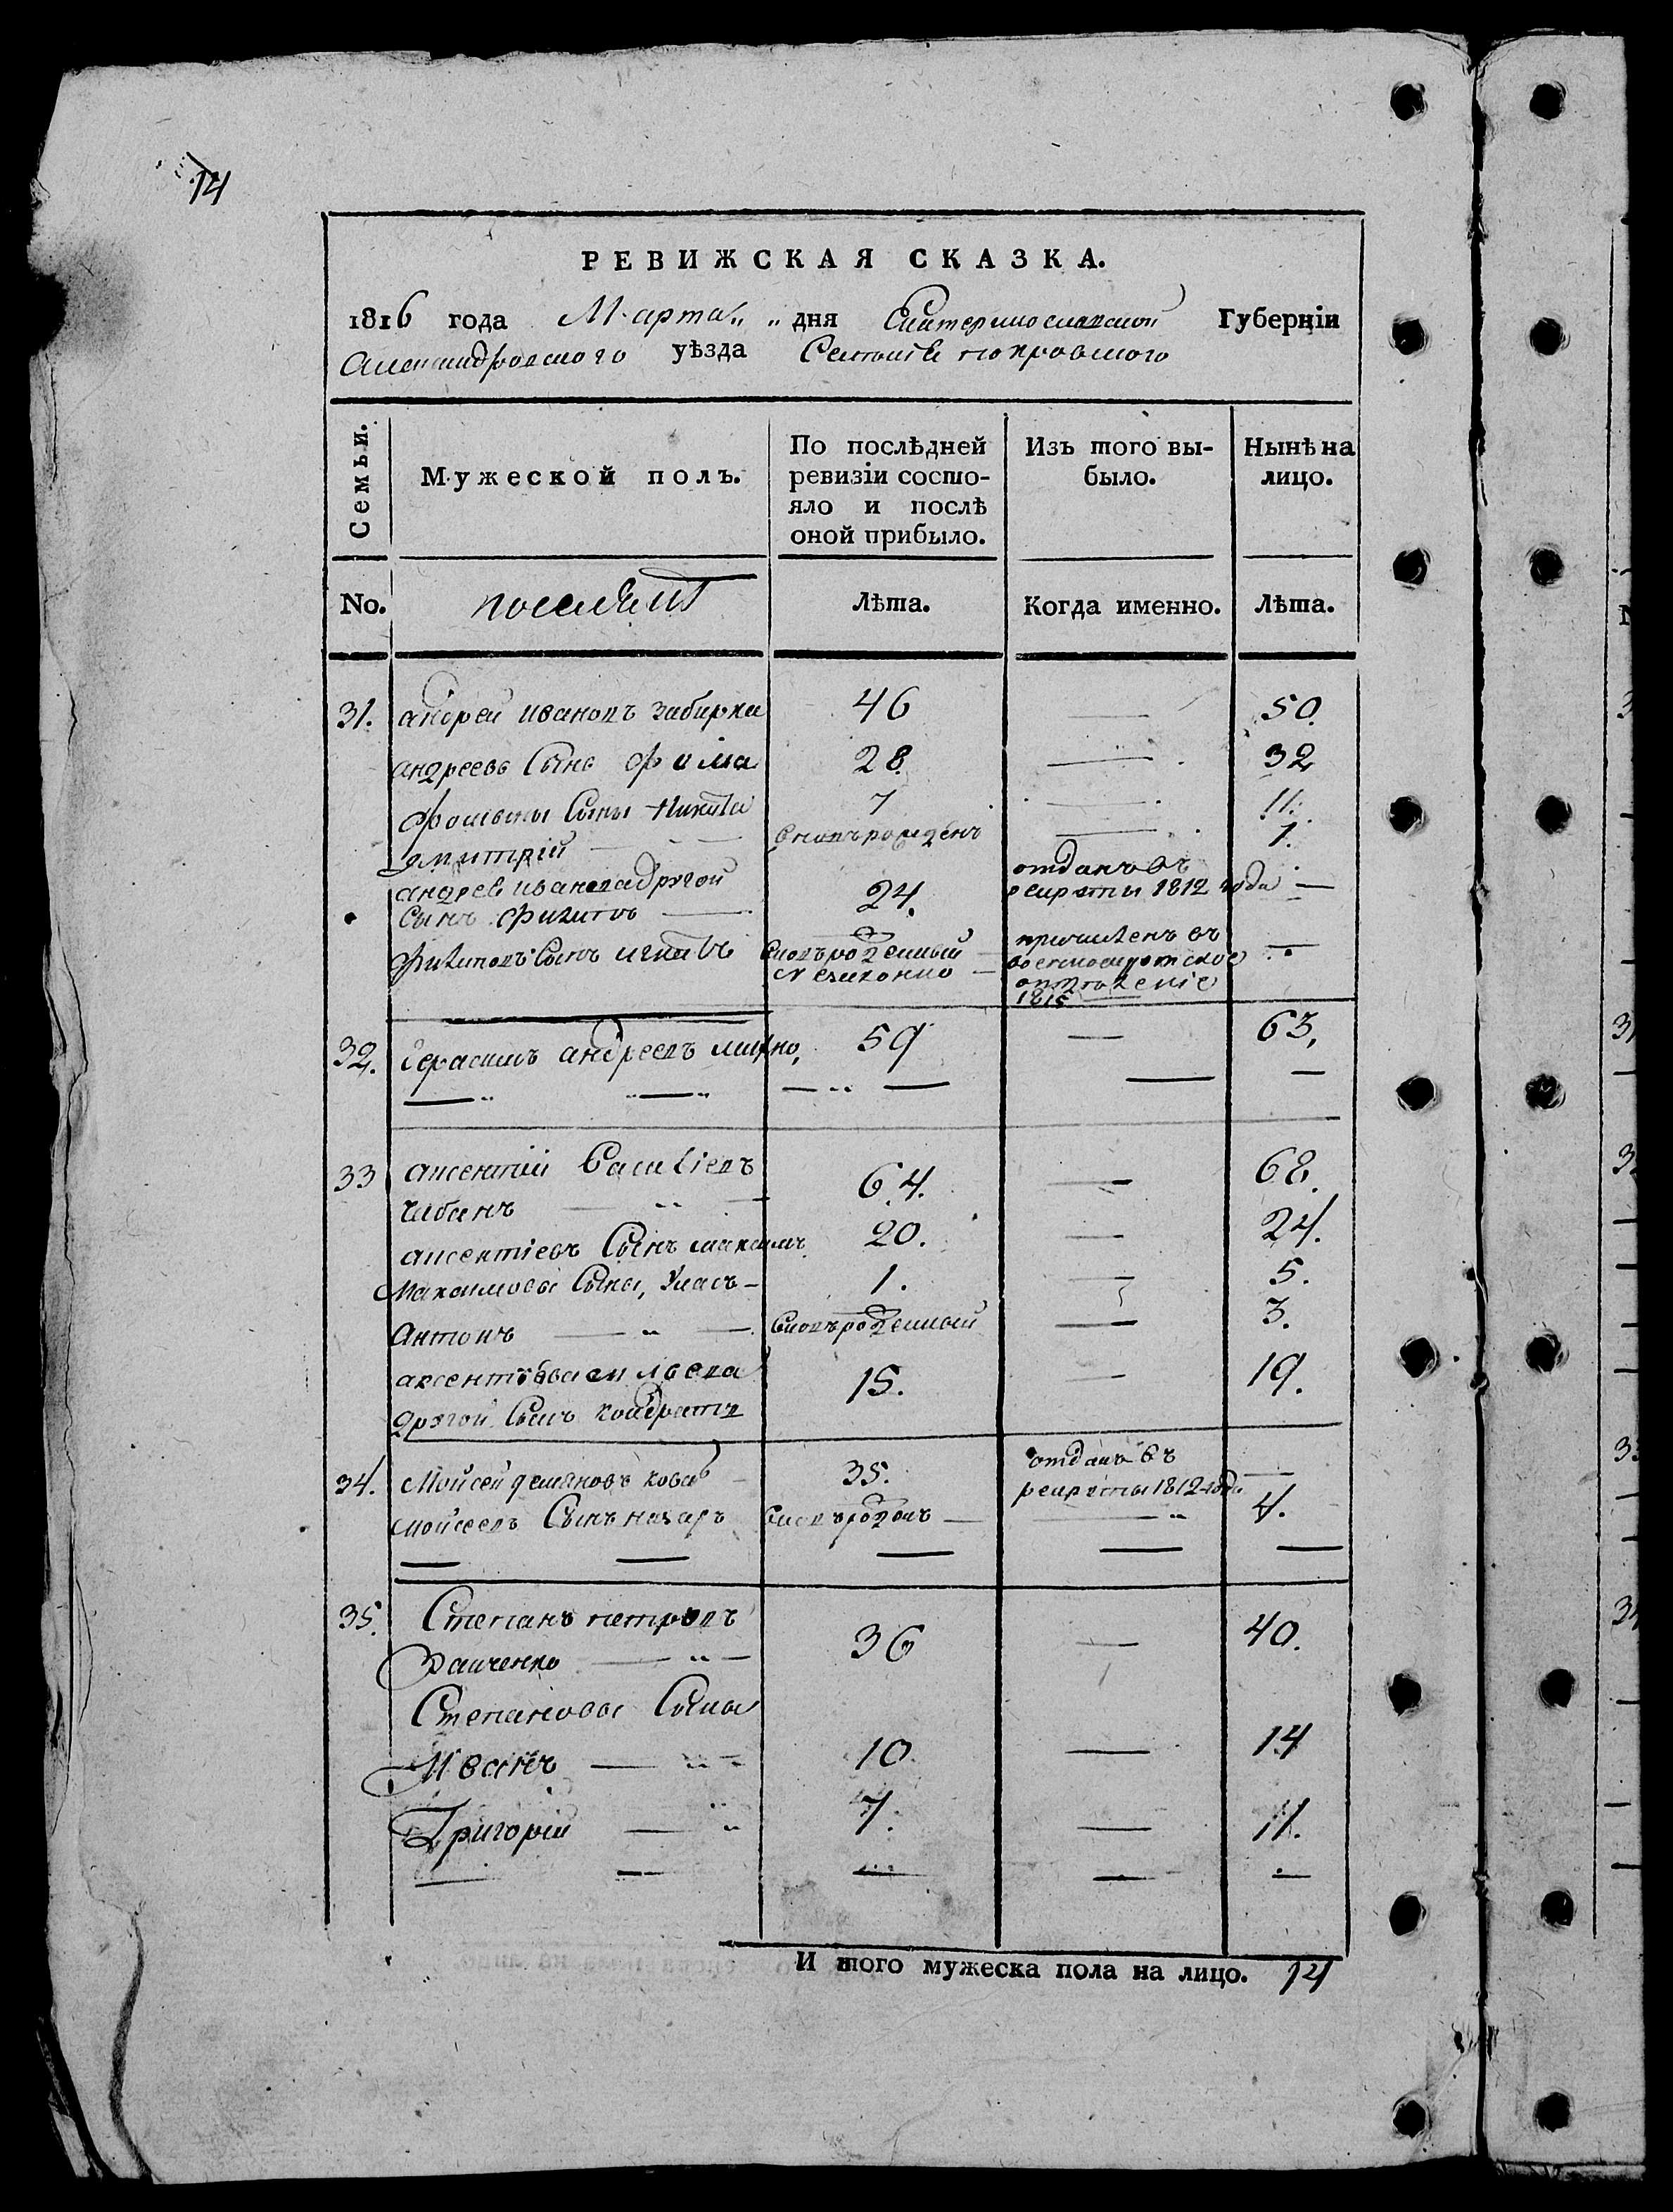 14
РЕВИЖСКАЯ СКАЗКА.
1816 года Марта „ „ дня Екатеринославской Губерніи
Александровского уѣзда Селенія покровского
Семьи.
Мужеской полъ.
По послѣдней ревизіи состо-
яло и послѣ
оной прибыло.
Изъ того вы-
было.
Нынѣ на
лицо.
No.
поселянъ
Лѣта.
Когда именно.
Лѣта.
31. андрей ивановъ забирка 46 — 50.
андреевъ Сынъ фома 28. — 32
фомины Сыны Никита 7 — 11.
дмитрій — вновьрожденъ — 1.
андрея иванова другой
Сынъ филипъ — 24. отданъ въ рекруты 1812 года —
филиповъ Сынъ игнатъ вновьрожденный
незаконно — причисленъ въ
военносиротское
отдѣленіе
1815 —
32. Герасимъ андреевъ 59 — 63.
33 аксентий Василіевъ
чабанъ — 64. — 68.
аксентіевъ Сынъ максимъ 20. — 24.
Максимовы Сыны, Уласъ — 1. — 5.
Антонъ — вновьрожденный — 3.
аксентія васильева
другой Сынъ кондратъ 15. — 19.
34. Мойсей демяновъ 35. отданъ въ
рекруты 1812 года —
мойсеевъ Сынъ назаръ вновьрожденъ — 4.
35. Степанъ петровъ
36 — 40.
Степановы Сыны
Иванъ — 10. — 14
Григорій — 7. — 11.
И того мужеска пола на лицо. 14